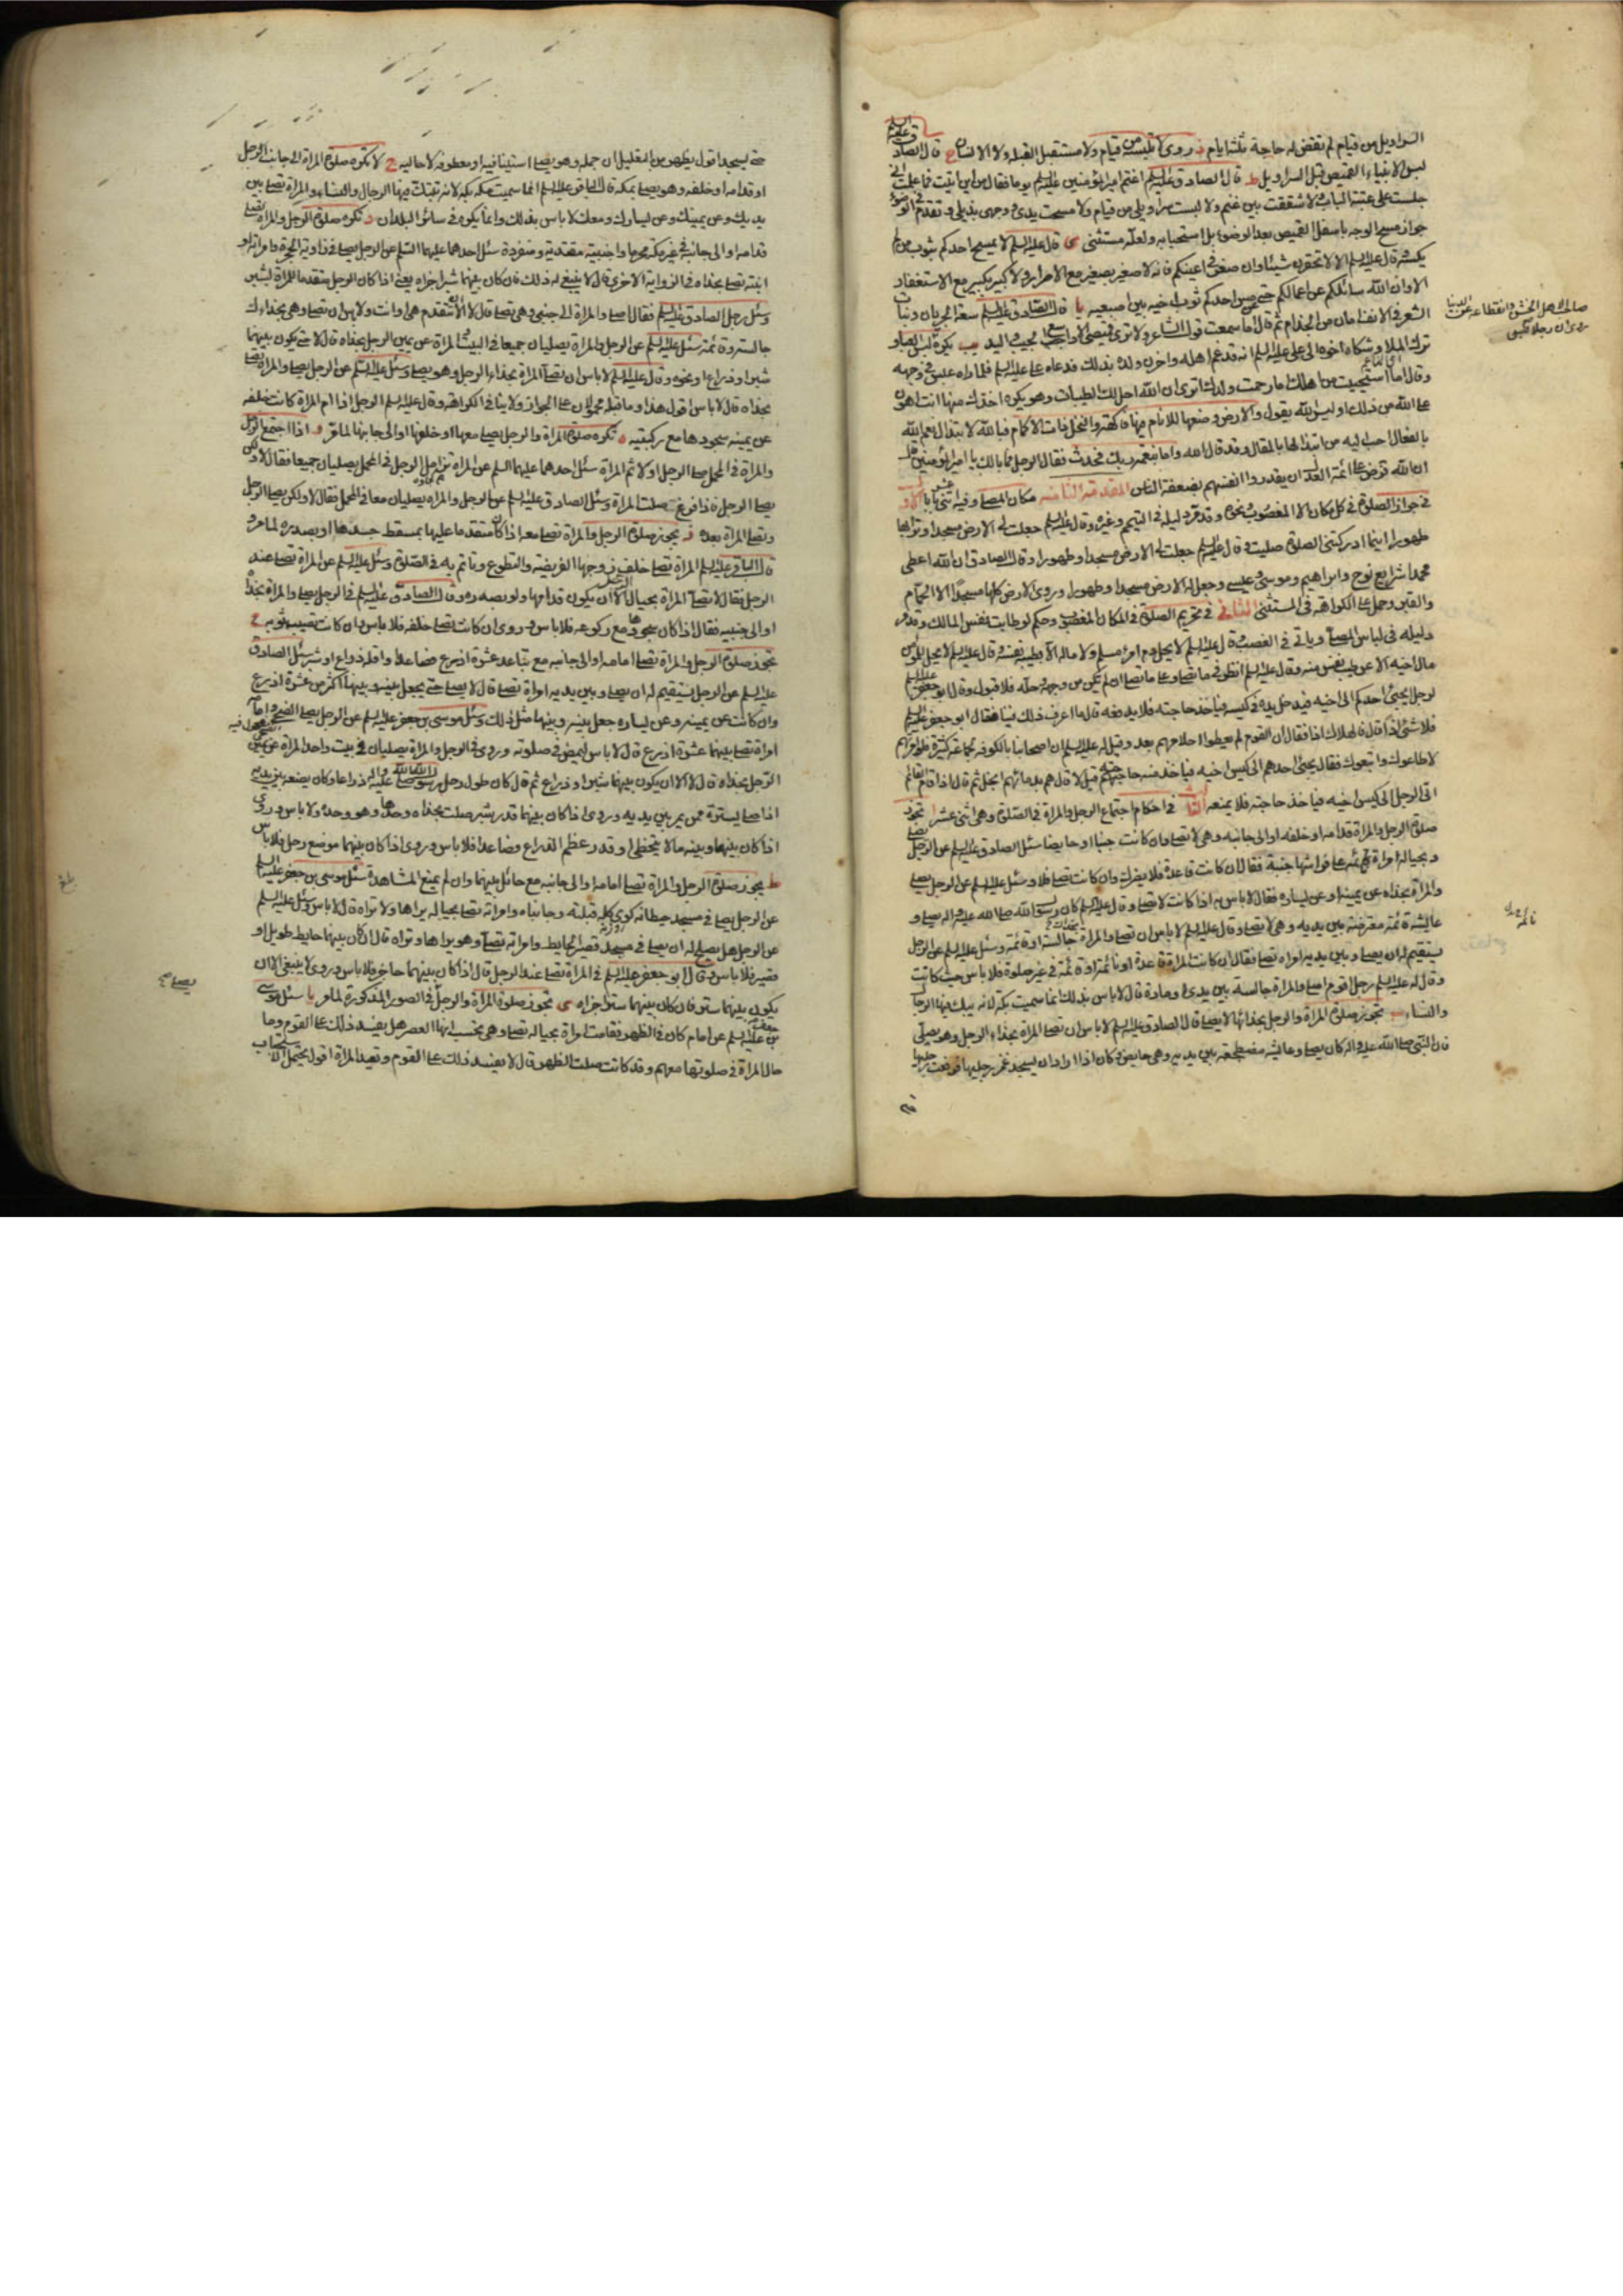 السراويل من قيام لم تقض له حاجة ثلثة ايام ز روى لا تلبسه من قيام ولا مستقبل القبلة ولا الانسان ح قال الصادق عليه السلم
لبس الانبياء القميص قبل السراويل ط قال الصادق عليه السلم اغتم امير المؤمنين عليه السلم يوما فقال من اين اتيت فما اعلم انى
جلست على عتبة الباب ولا شققت بين غنم ولا لبست سراويلي من قيام ولا مسحت يدي ووجهي بذيلي و تقدم في الوضوء
جواز مسح الوجه باسفل القميص بعد الوضوء بل استحبابه ولعله مستثنى ى قال عليه السلم لا يمسح احدكم بثوب من لم
يكسه قال عليه السلم الا لا تحقرن شيئا وان صغر في اعينكم فانه لا صغير بصغير مع الاصرار ولا كبير بكبير مع الاستغفار
الا وان الله سائلكم عن اعمالكم حتى مس احدكم ثوب اخيه بين اصبعيه يا قال الصادق عليه السلم سعة الجربان ونبات
الشعر في الانف امان من الجذام ثم قال اما سمعت قول الشاعر ولا ترى قميصي الا واسع الجيب واليد يب يكره لبس الصوف
ترك الملاء وشكاه اخوه الى على عليه السلم انه قد غم اهله واحزن ولده بذلك فدعاه على عليه السلم فلما راه عبس في وجهه
وقال اما استحييت من اهلك اما رحمت ولدك اترى ان الله احل لك الطيبات وهو يكره اخذك منها انت اهون
على الله من ذلك او ليس الله يقول والارض وضعها للانام فيها فاكهة والنخل ذات الاكمام فبالله لابتذال نعم الله
بالفعال احب اليه من ابتذالها بالمقال وقد قال الله واما بنعمة ربك فحدث فقال الرجل فما بالك يا امير المؤمنين قال
ان الله فرض على ائمة العدل ان يقدروا انفسهم بضعفة الناس المقدمة الثامنه مكان المصلي وفيه اثنى عشر بابا الاول
في جواز الصلوة في كل مكان الا المغصوب ونحوه وقد مر دليله في التيمم وغيره وقال عليه السلم جعلت لي الارض مسجدا وترابها
طهورا اينما ادركتنى الصلوة صليت وقال عليه السلم جعلت لي الارض مسجدا وطهورا وقال الصادق ان الله اعطى
محمدا شرايع نوح وابراهيم وموسى وعيسى وجعل له الارض مسجدا وطهورا وروى الارض كلها مسجد الا الحمام
والقبر وحمل على الكراهة في المستثنى الثاني في تحريم الصلوة في المكان المغصوب وحكم لو طابت نفس المالك وقد مر
دليله في لباس المصلي وياتي في الغصب وقال عليه السلم لا يحل دم امرء مسلم ولا ماله الا بطيبة نفسه وقال عليه السلم لا يحل لمؤمن
مال اخيه الا عن طيب نفس منه وقال عليه السلم انظر في ما تصلي وعلى ما تصلي ان لم يكن من وجهه وحله فلا قبول وقال ابو جعفر عليه السلم
لرجل يجئ احدكم الى اخيه فيدخل يده في كيسه فياخذ حاجته فلا يدفعه قال ما اعرف ذلك فينا فقال ابو جعفر عليه السلم
فلا شئ اذا قال فالهلاك اذا فقال ان القوم لم يعطوا احلامهم بعد وقيل له عليه السلم ان اصحابنا بالكوفه جماعة كثيرة فلو امرتهم
لاطاعوك واتبعوك فقال يجئ احدهم الى كيس اخيه فياخذ منه حاجته قيل لا قال هم بدمائهم ابخل ثم قال اذا قام القائم
اتى الرجل الى كيس اخيه فياخذ حاجته فلا يمنعه الثالث في احكام اجتماع الرجل والمراة في الصلوة وهي اثنى عشر ا تجوز
صلوة الرجل والمراة قدامه او خلفه او الى جانبه وهى لا تصلي وان كانت جنبا او حايضا سئل الصادق عليه السلم عن الرجل يصلي
و بحياله امراة قائمة على فراشها جنبة فقال ان كانت قاعدة فلا يضرك وان كانت تصلي فلا وسئل عليه السلم عن الرجل يصلي
والمراة بحذاه عن يمينه او عن يساره فقال لا باس به اذا كانت لا تصلي وقال عليه السلم كان رسول الله صلى الله عليه واله يصلي و
عايشة نائمة معترضة بين يديه وهى لا تصلي وقال عليه السلم لا باس ان تصلي والمراة بحذاك جالسة او قائمة وسئل عليه السلم عن الرجل
يستقيم له ان يصلي وبين يديه امراة تصلي فقال ان كانت المراة قاعدة او نائمة او قائمة في غير صلوة فلا باس حيث كانت
وقال له عليه السلم رجل اقوم اصلي والمراة جالسة بين يدي او مارة قال لا باس بذلك انما سميت بكة لانه يبك فيها الرجال
والنساء ب تجوز صلوة المراة والرجل بحذائها لا يصلي قال الصادق عليه السلم لا باس ان تصلي المراة بحذاء الرجل وهو يصلي
فان النبي صلى الله عليه واله كان يصلي وعايشه مضطجعة بين يديه وهى حايض وكان اذا اراد ان يسجد غمز رجليها فرفعت رجليها
حتى يسجد اقول يظهر من التعليل ان جملة وهو يصلي استينافيه او معطوفه لا حاليه ج لا تكره صلوة المراة الى جانب الرجل
او قدامه او خلفه وهو يصلي بمكة قال الباقر عليه السلم انما سميت مكة بكة لانه تبتك فيها الرجال والنساء والمراة تصلي بين
يديك وعن يمينك وعن يسارك ومعك لا باس بذلك وانما يكره في سائر البلدان د تكره صلوة الرجل والمراة تصلي
قدامه او الى جانبه في غير مكة محرما واجنبية مقتدية ومنفردة سئل احدهما عليهما السلم عن الرجل يصلي في زاوية الحجرة وامراته او
ابنته تصلي بحذاه في الزواية الاخرى قال لا ينبغي له ذلك فان كان بينهما شبر اجزاه يعنى اذا كان الرجل متقدما للمراة بشبر
وسئل رجل الصادق عليه السلم فقال اصلي والمراة الى جنبي وهى تصلي قال لا الا ان تتقدم هى او انت ولا باس ان تصلي وهى بحذاءك
جالسة او قائمة وسئل عليه السلم عن الرجل والمراة يصليان جميعا في البيت المراة عن يمين الرجل بحذاه قال لا حتى يكون بينهما
شبر او ذراع او نحوه وقال عليه السلم لا باس ان تصلي المراة بحذاء الرجل وهو يصلي وسئل عليه السلم عن الرجل يصلي والمراة تصلي
بحذاه قال لا باس اقول هذا وما قبله محمولان على الجواز ولا ينافي الكراهة وقال عليه السلم الرجل اذا ام المراة كانت خلفه
عن يمينه سجودها مع ركبتيه ه تكره صلوة المراة والرجل يصلي معها او خلفها او الى جانبها لما مر و اذا اجتمع الرجل
والمراة في المحمل صلى الرجل اولا ثم المراة سئل احدهما عليهما السلم عن المراة تزامل الرجل في المحمل يصليان جميعا فقال لا ولكن
يصلي الرجل فاذا فرغ صلت المراة وسئل الصادق عليه السلم عن الرجل والمراة يصليان معا في المحمل فقال لا ولكن يصلي الرجل
وتصلي المراة بعده ز يجوز صلوة الرجل والمراة تصلي معه اذا كان متقدما عليها بمسقط جسدها او بصدره لما مر و
قال الباقر عليه السلم المراة تصلي خلف زوجها الفريضة والتطوع وتاتم به في الصلوة وسئل عليه السلم عن المراة تصلي عند
الرجل فقال لا تصلي المراة بحيال الرجل الا ان يكون قدامها ولو بصدره وقال الصادق عليه السلم في الرجل يصلي والمراة بحذاه
او الى جنبيه فقال اذا كان سجودها مع ركوعه فلا باس وروى ان كانت تصلي خلفه فلا باس وان كانت تصيب ثوبه ح
تجوز صلوة الرجل والمراة تصلي امامه او الى جانبه مع تباعد عشرة اذرع فصاعدا واقله ذراع او شبر سئل الصادق
عليه السلم عن الرجل يستقيم له ان يصلي وبين يديه امراة تصلي قال لا يصلي حتى يجعل بينه وبينها اكثر من عشرة اذرع
وان كانت عن يمينه وعن يساره جعل بينه وبينها مثل ذلك وسئل موسى بن جعفر عليه السلم عن الرجل يصلي الضحى وامامه
امراة تصلي بينهما عشرة اذرع قال لا باس ليمض في صلوته وروى في الرجل والمراة يصليان في بيت واحد المراة عن يمين
الرجل بحذاه قال لا الا ان يكون بينهما شبر او ذراع ثم قال كان طول رحل رسول الله صلى الله عليه واله ذراعا وكان يضعه بين يديه
اذا صلى يستره ممن يمر بين يديه وروى اذا كان بينهما قدر شبر صلت بحذاه وحدها وهو وحده ولا باس وروى
اذا كان بينها وبينه ما لا يتخطى او قدر عظم الذراع فصاعدا فلا باس وروى اذا كان بينهما موضع رحل فلا باس
ط يجوز صلوة الرجل والمراة تصلي امامه او الى جانبه مع حائل بينهما وان لم يمنع المشاهدة سئل موسى بن جعفر عليه السلم
عن الرجل يصلي في مسجد حيطانه كوى كله قبلته وجانباه وامراته تصلي بحياله يراها ولا تراه قال لا باس وسئل عليه السلم
عن الرجل هل يصلح له ان يصلي في مسجد قصير الحايط وامراته تصلي وهو يراها وتراه قال ان كان بينهما حايط طويل او
قصير فلا باس وقال ابو جعفر عليه السلم في المراة تصلي عند الرجل قال اذا كان بينهما حاجز فلا باس وروى لا ينبغي الا ان
يكون بينهما ستر فان كان بينهما ستر اجزاه ى تجوز صلوة المراة والرجل في الصور المذكورة لما مر يا سئل موسى
بن جعفر عليه السلم عن امام كان في الظهر فقامت امراة بحياله تصلي وهى تحسب انها العصر هل يفسد ذلك على القوم وما
حال المراة في صلوتها معهم وقد كانت صلت الظهر قال لا يفسد ذلك على القوم وتعيد المراة اقول يحتمل الاستحباب